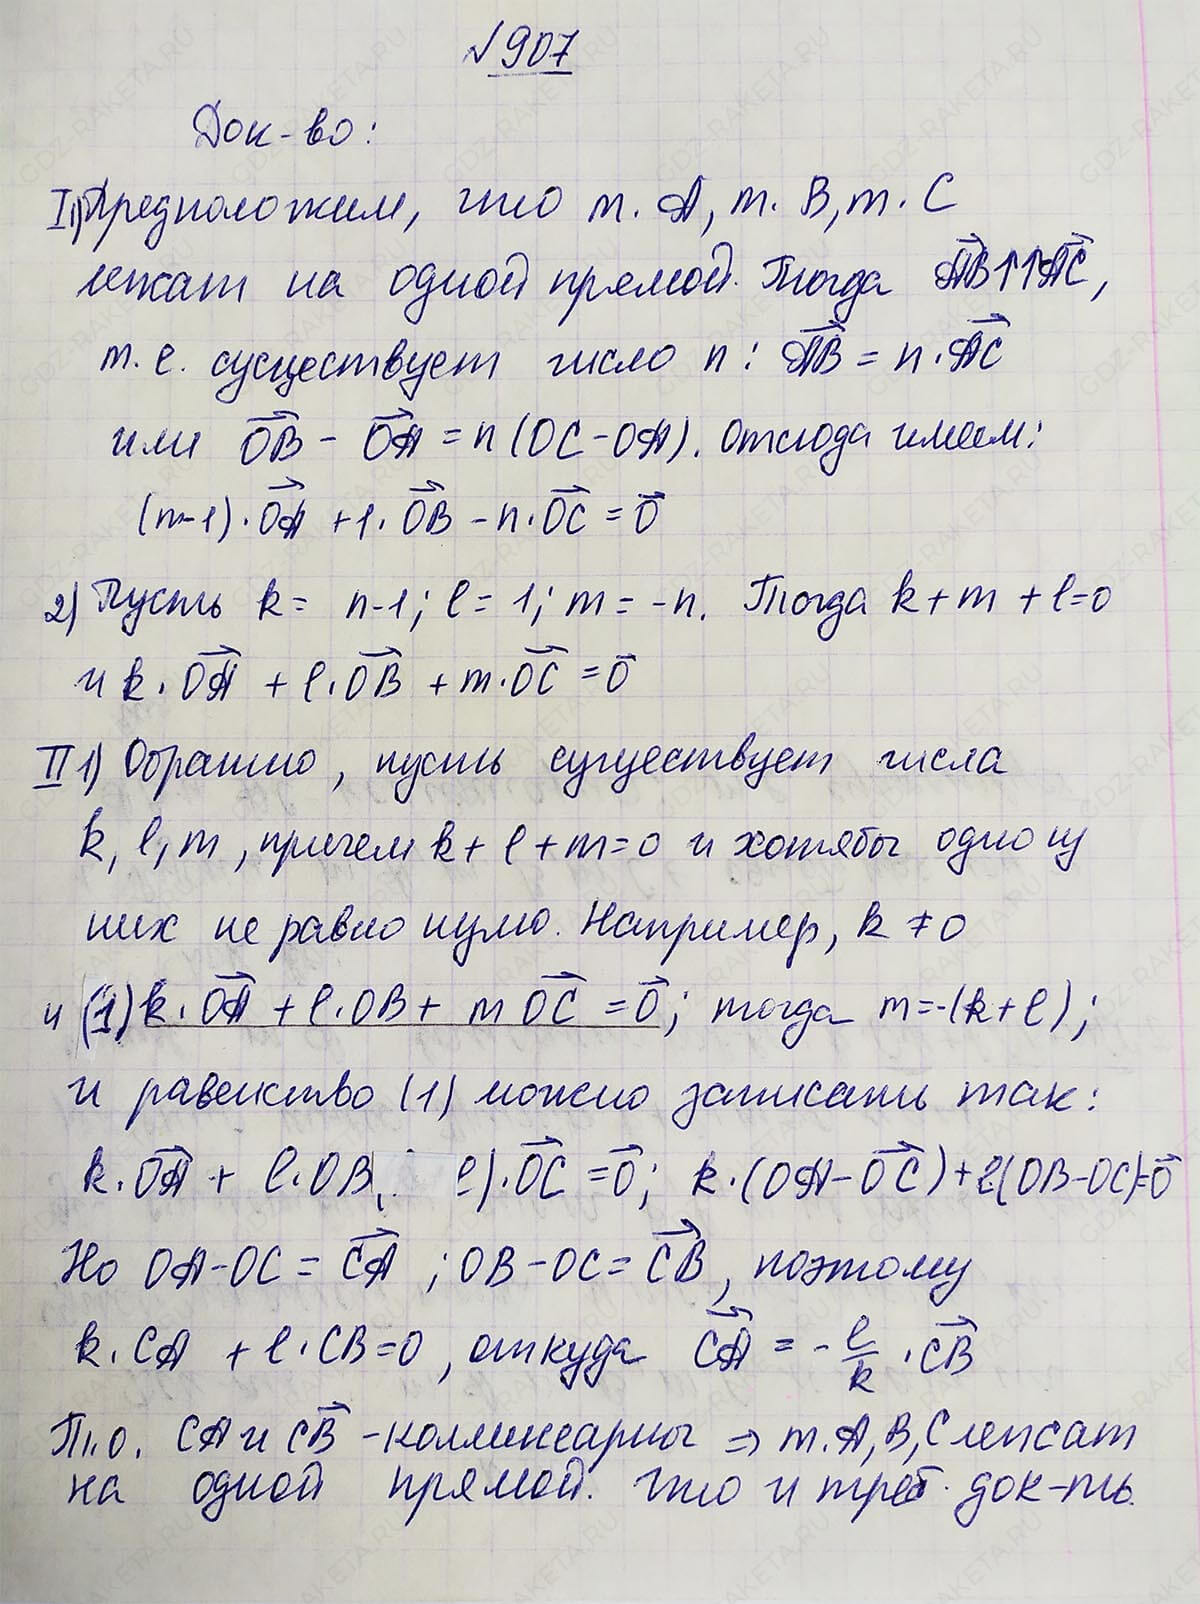 №907
Док-во:
I 1) Предположим, что т. А, т. В, т. С
лежат на одной прямой. Тогда AB⃗↑↑AC⃗,
т. е. существует число n: AB⃗ = n·AC⃗
или OB⃗ - OA⃗ = n(OC-OA). Отсюда имеем:
(n-1)·OA⃗ + 1·OB⃗ - n·OC⃗ = 0⃗
2) Пусть k = n-1; l = 1; m = -n. Тогда k+m+l=0
и k·OA⃗ + l·OB⃗ + m·OC⃗ = 0⃗
II 1) Обратно, пусть существует числа
k, l, m, причем k+l+m=0 и хотябы одно из
них не равно нулю. Например, k ≠ 0
и (1) k·OA⃗ + l·OB + m OC⃗ = 0⃗; тогда m=-(k+l);
и равенство (1) можно записать так:
k·OA⃗ + l·OB l)·OC⃗ = 0⃗; k·(OA-OC⃗)+l(OB-OC)=0⃗
Но OA-OC = CA⃗; OB-OC = CB⃗, поэтому
k·CA + l·CB=0, откуда CA⃗ = -l/k·CB⃗
Т.о. CA и CB⃗ - коллинеарны ⇒ т. А, В, С лежат
на одной прямой. Что и треб. док-ть.